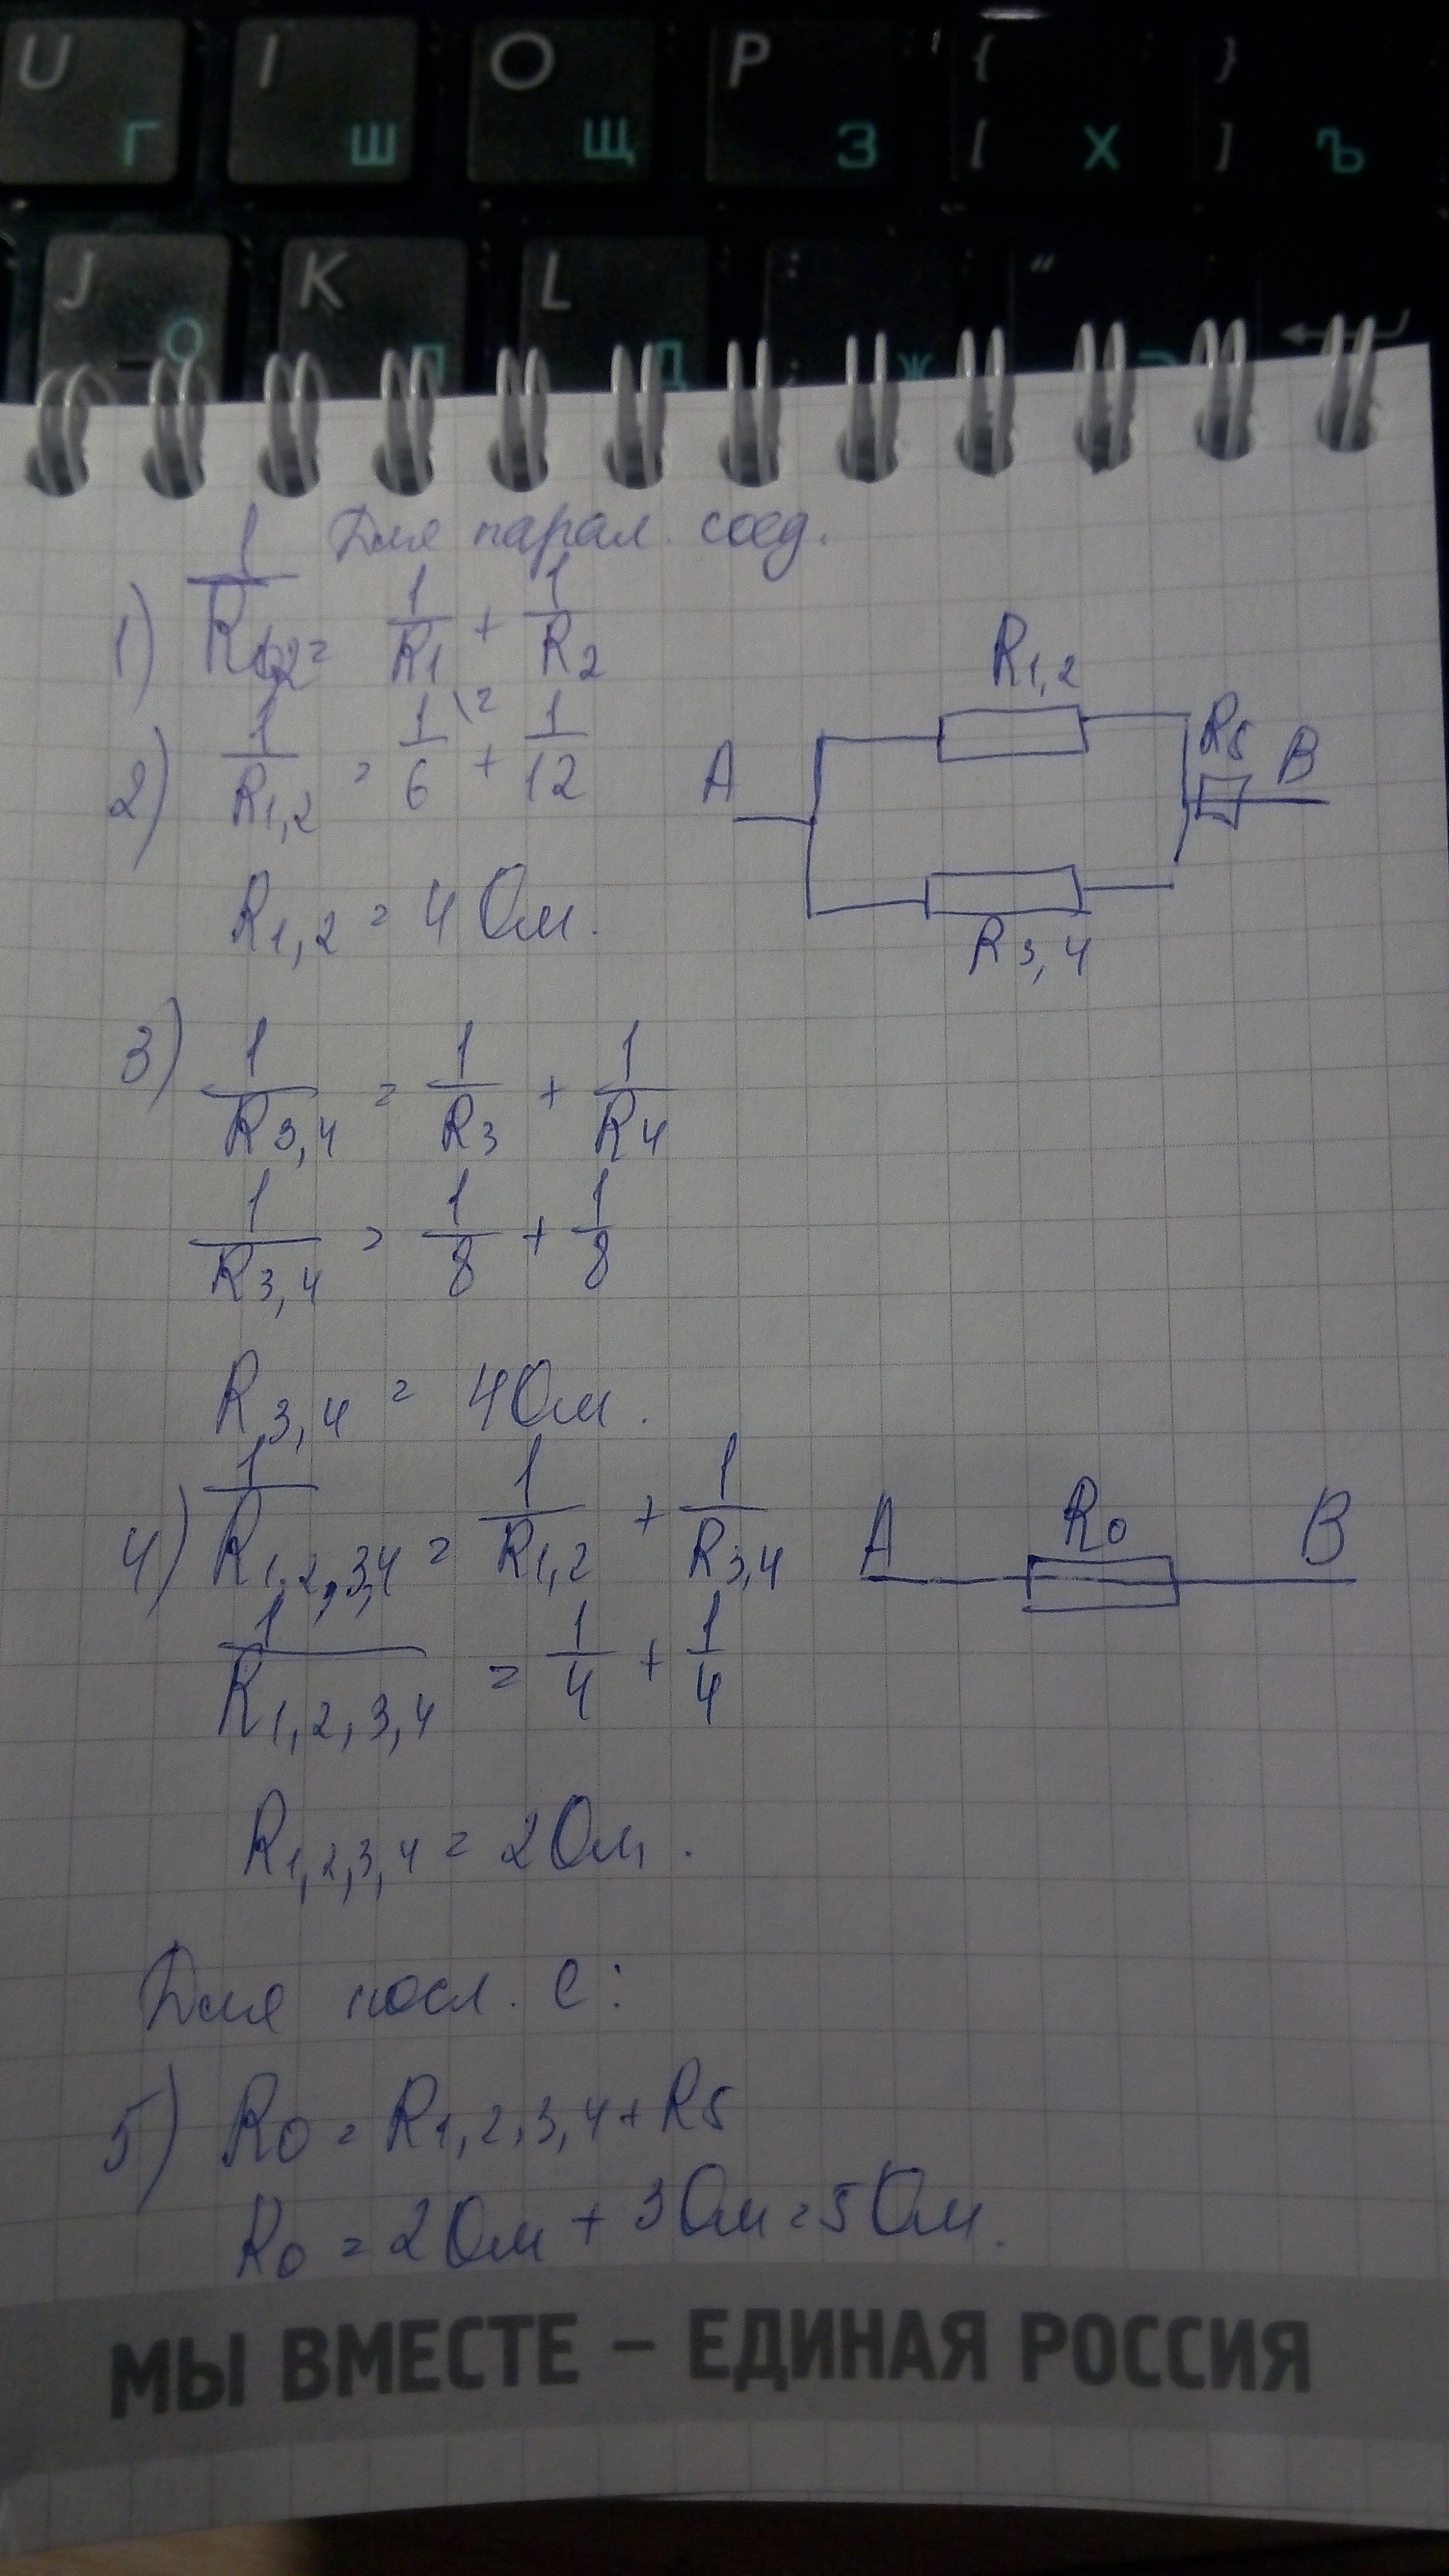 U Г I Ш O Щ P З { [ Х } ] Ъ
J О K Л L Д : ; Ж “ Э
Для парал. соед.
1) 1/R1,2 = 1/R1 + 1/R2
2) 1/R1,2 = 1/6 \2 + 1/12
R1,2 = 4 Ом.
A R1,2 R5 B
R3,4
3) 1/R3,4 = 1/R3 + 1/R4
1/R3,4 = 1/8 + 1/8
R3,4 = 4 Ом.
4) 1/R1,2,3,4 = 1/R1,2 + 1/R3,4
A R0 B
1/R1,2,3,4 = 1/4 + 1/4
R1,2,3,4 = 2 Ом.
Для посл. с:
5) R0 = R1,2,3,4 + R5
R0 = 2 Ом + 3 Ом = 5 Ом.
МЫ ВМЕСТЕ – ЕДИНАЯ РОССИЯ